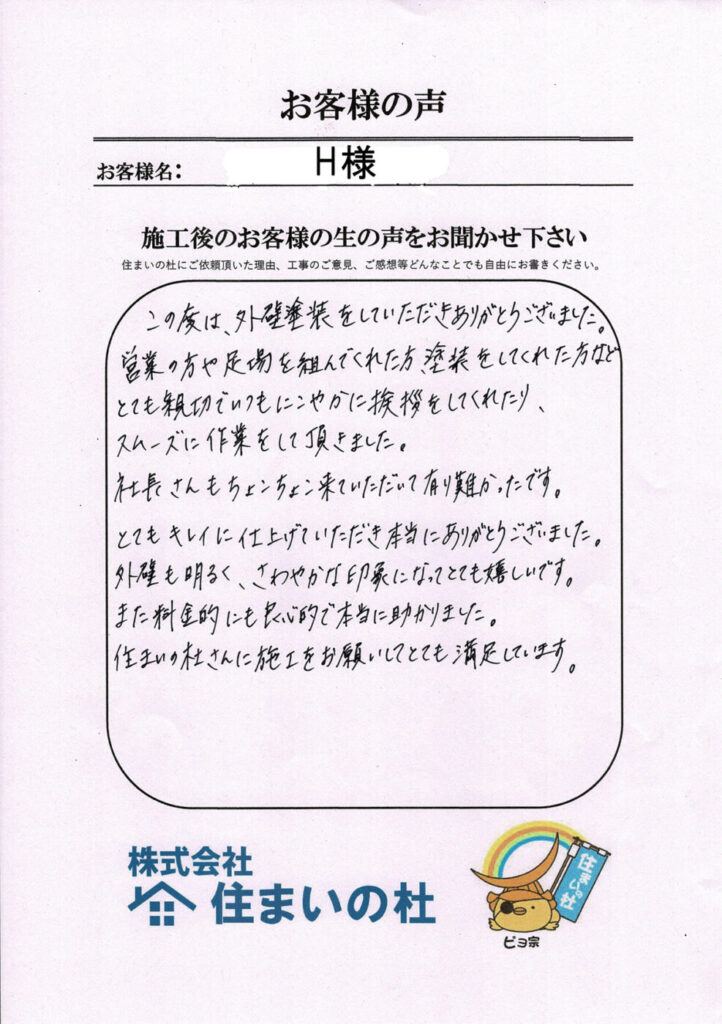 お客様の声
お客様名: H様
施工後のお客様の生の声をお聞かせ下さい
住まいの杜にご依頼頂いた理由、工事のご意見、ご感想等どんなことでも自由にお書きください。
この度は、外壁塗装をしていただきありがとうございました。
営業の方や足場を組んでくれた方、塗装をしてくれた方など
とても親切でいつもにこやかに挨拶をしてくれたり、
スムーズに作業をして頂きました。
社長さんもちょこちょこ来ていただいて有り難かったです。
とてもキレイに仕上げていただき本当にありがとうございました。
外壁も明るく、さわやかな印象になってとても嬉しいです。
また料金的にも良心的で本当に助かりました。
住まいの杜さんに施工をお願いしてとても満足しています。
株式会社
住まいの杜
住まいの杜
ピヨ宗